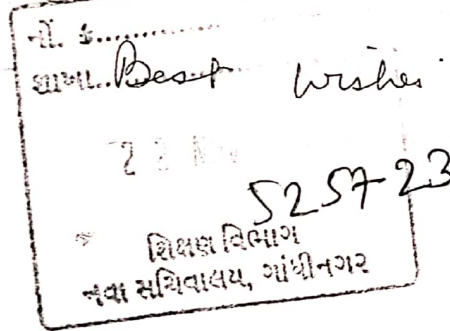 નોં. ક્ર..............
શાખા..Best wishes
2 2
525723
શિક્ષણ વિભાગ
નવા સચિવાલય, ગાંધીનગર